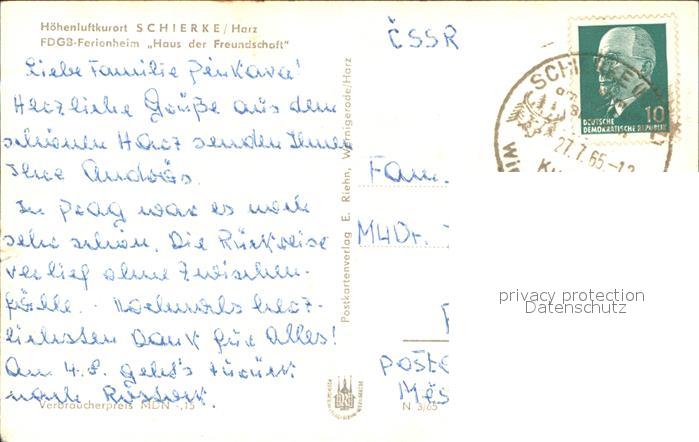 Höhenluftkurort SCHIERKE/Harz
FDGB-Ferienheim „Haus der Freundschaft"
Liebe Familie Pinkava!
Herzliche Grüße aus dem
schönen Harz senden Ihnen
Ihre
In Prag war es noch
sehr schön. Die Rückreise
verlief ohne Zwischen-
fälle. Nochmals herz-
lichsten Dank für alles!
Am 4.8. geht's zurück
nach Rostock.
Verbraucherpreis MDN -,15
Postkartenverlag E. Riehn, Wernigerode/Harz
N 3/65
ČSSR
Fam.
MUDr.
SCHIERKE
27.7.65.-12
10
DEUTSCHE
DEMOKRATISCHE REPUBLIK
privacy protection
Datenschutz